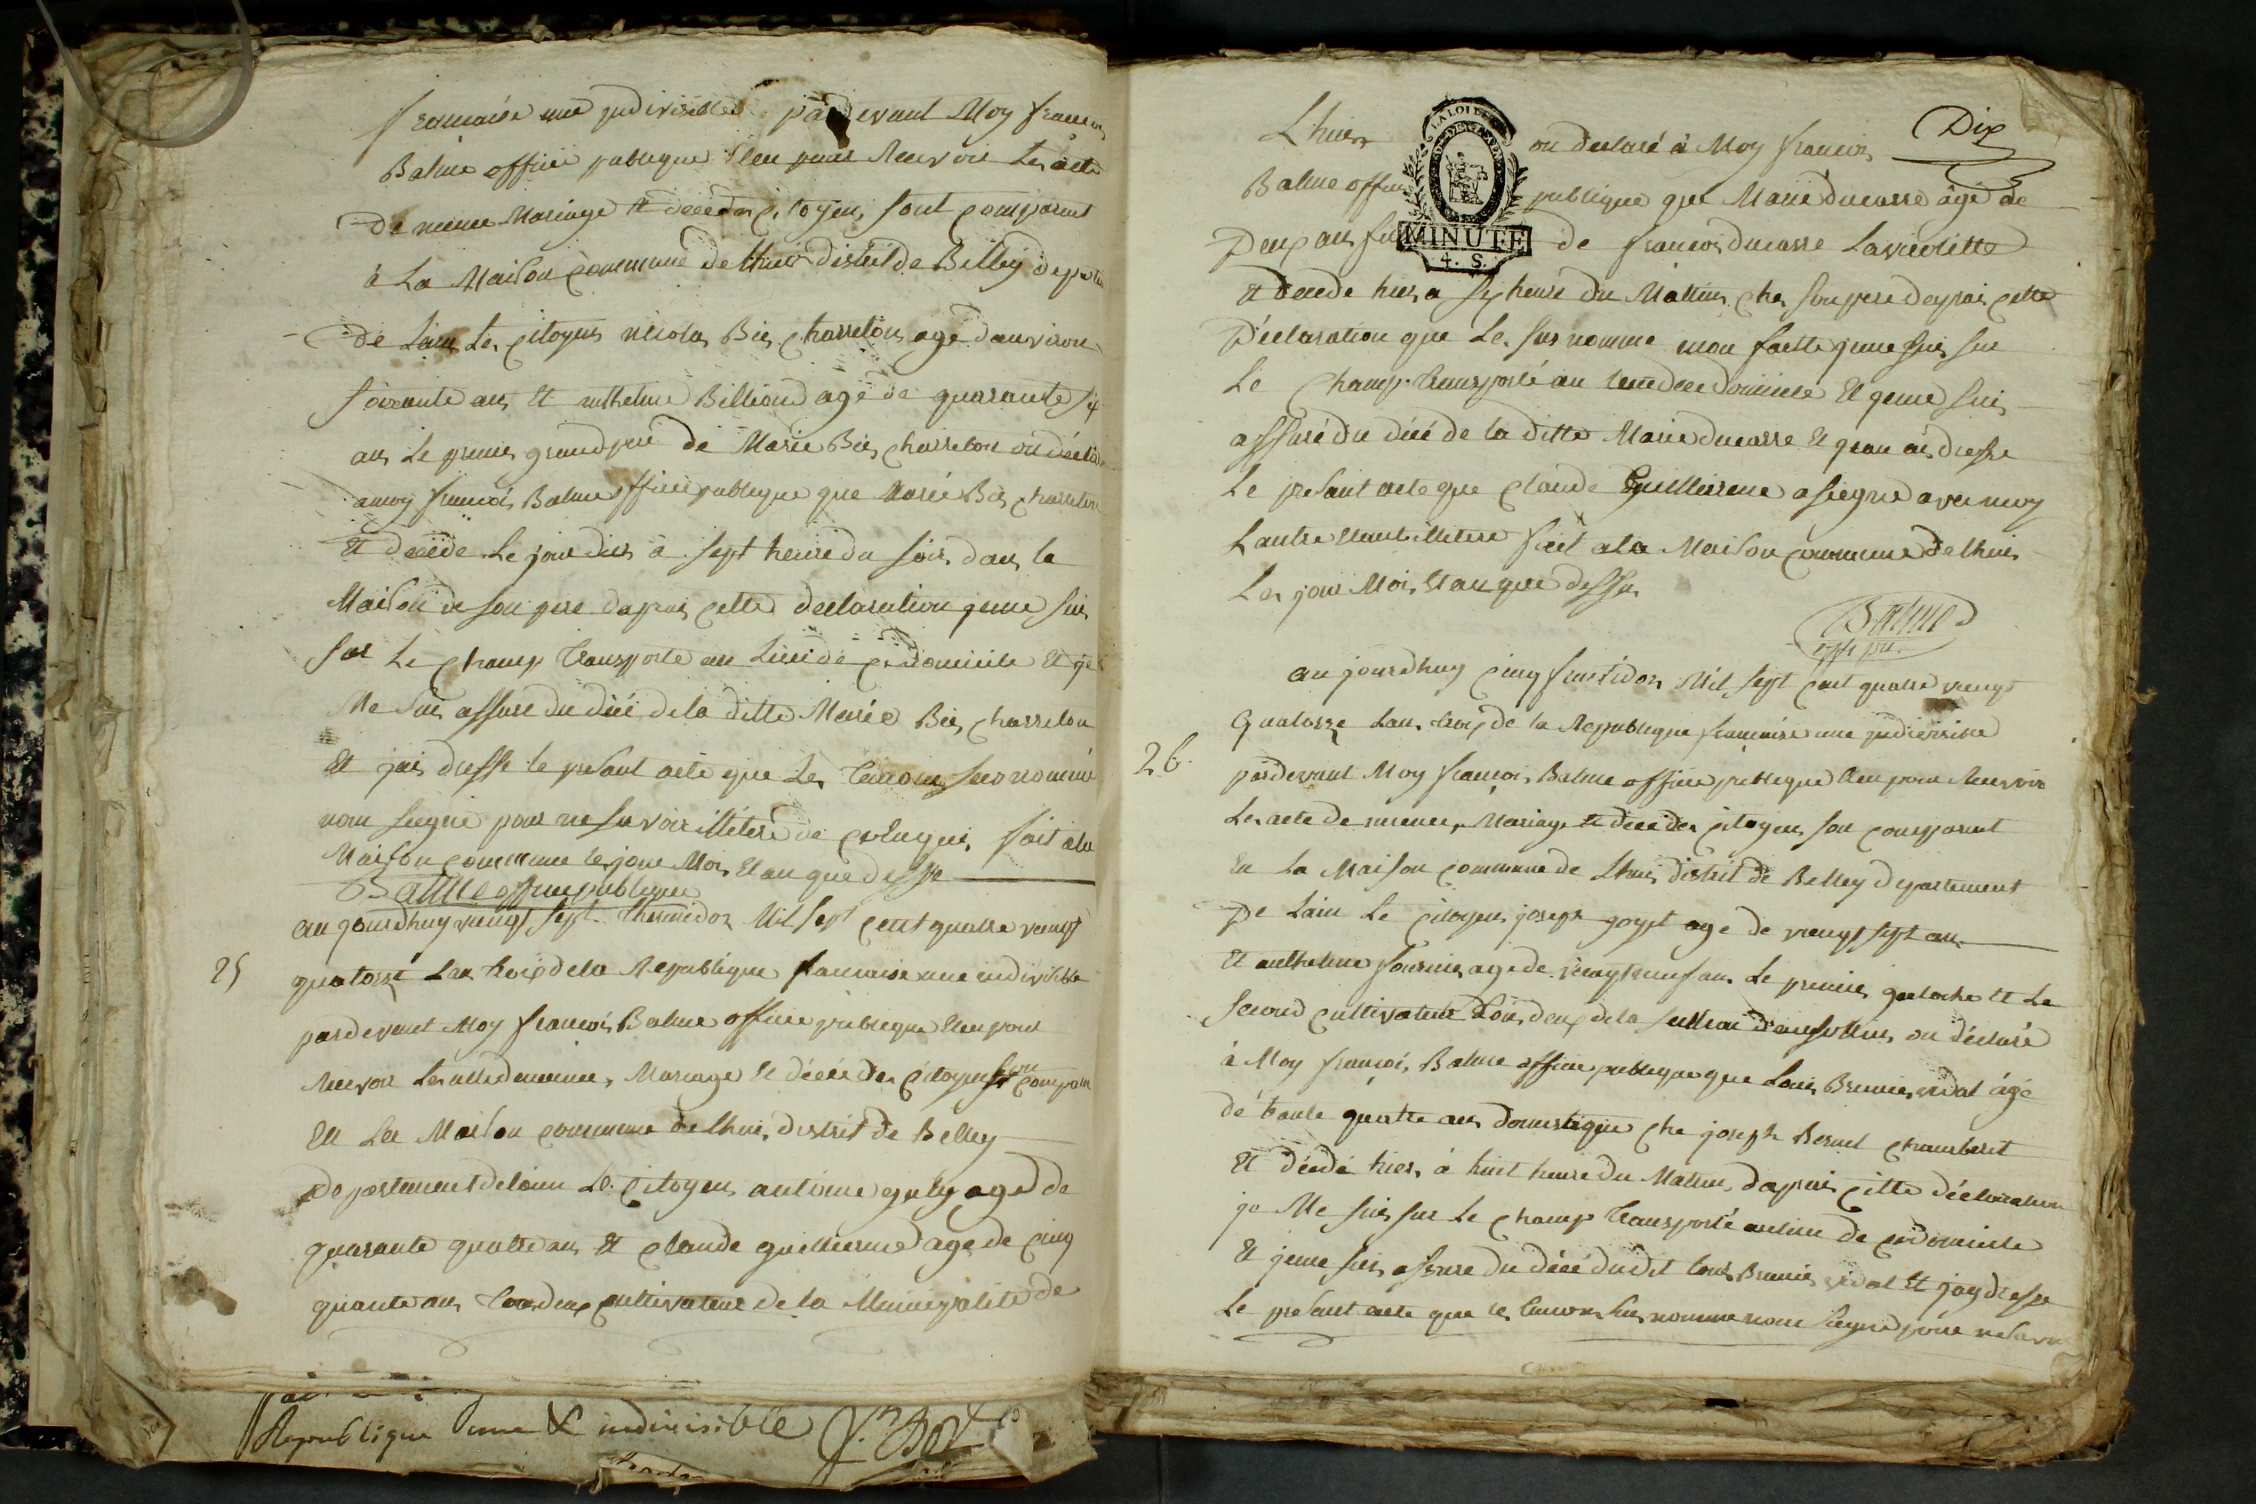 francaise une indivisible pardevant Moy francois
Balme officie publique Eleu pour Recevoir Les acte
De nence Mariage et deceder Citoyens sont comparut
à La Maison commune de Lhuis distrit de Belley depart
de Lain Les Citoyens nicola Bis Charreton agé danviron
soixante ans Et anthelme Billioud agé de quarante six
ans Le premier grand pere de Marie Bis charreton on déclaré
a moy francois Balme officie publique que Marie Bis charreton
Et decede Le jour dier à sept heure du soir dans la
Maison de son pere dapres cette declaration jeme suis
sur Le champ transporte au Lieu de ce domicile Et je
Me suis assure du décé de la ditte Marie Bis charreton
Et jais dresse le present acte que Les temoins sus nommé
nous siegné pour ne savoir illiteré de ce enquis fait a la
Maison commune les jour Mois Et an que dessu
Balme officie publique
25
au jourdhuy vengt sept thermidor Mil sept cent quatre vengt
quatorze Lan troip de la Republique francaise une indivisible
pardevant Moy francois Balme officie publique Eleu pour
Recevoir Les acte de nence, Mariage Et décéé des Citoyens son compar
En La Maison commune de Lhuis distrit de Belley
Departement de lain Le Citoyens antoine guly agé de
quarante quatre ans Et Claude guillierme agé de cinq
quante ans tou deux cultivateur de la Municipalité de
Republique une & indivisible
Dix
LA LOI
MINUTE
4. S.
Lhuis on declaré à Moy francois
Balme officie publique que Marie ducarre âgé de
Deux ans fille de francois ducarre Laviolette
Et decede hier a six heure du Mattin che son pere dapres cette
Déclaration que Les sus nomme mon faitte jeme suis sur
Le Champ transporté au Lieu de ce domicile Et jeme suis
assuré du décé de la ditte Marie ducarre Et jean ai dresse
Le presant acte que Claude Guillierme a siegné avec moy
Lautre Etant illitere fait a la Maison commune de Lhuis
Les jour Mois Et an que dessu
Balme
offi pu.
26.
au jourdhuy cinq fructidor Mil sept cent quatre vengt
Quatorze Lan troip de la Republique francaise une indivisible
pardevant Moy francois Balme officie publique Eleu pour Recevoir
Les acte de nence, Mariage Et décé des Citoyens son comparut
En La Maison commune de Lhuis distrit de Belley departement
De Lain Le Citoyens joseph goyet agé de vengt sept ans
Et anthelme fournier agé de vengt neuf ans Le premier galoche Et Le
Second cultivateur Tous deux de la section dansolin on déclaré
à Moy francois Balme officie publique que Louis Brunier vidal âgé
dé trante quatre ans domestique che joseph Bernel chamberet
Et décédé hier à huit heure du Matin dapres cette déclaration
je Me suis sur Le champ transporté au lieu de ce domicile
Et jeme suis assure du décé dudit Louis Brunier vidal Et jay dresse
Le presant acte que les temoins sus nomme nous siegné pour ne savoir